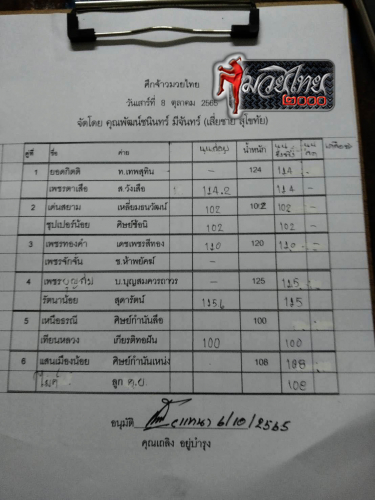 มวยไทย ๒๐๐๐
ศึกจ้าวมวยไทย
วันเสาร์ที่ 8 ตุลาคม 2565
จัดโดย คุณพัฒน์ชนินทร์ มีจันทร์ (เสี่ยชาย สุโขทัย)
คู่ที่ ชื่อ ค่าย น้ำหนัก
1 ยอดกิตติ ท.เทพสุทิน – 124 114 –
เพชรดาเสือ ส.วังเสือ 114.2 114 –
2 เด่นสยาม เหลี่ยมธนวัฒน์ 102 102 102 –
ซุปเปอร์น้อย ศิษย์ซือนี 102 102 –
3 เพชรทองคำ เดชเพชรสีทอง 110 120 110 –
เพชรจักจั่น ช.ห้าพยัคฆ์ –
4 เพชร บ.บุญสมควรถาวร – 125 115
รัตนาน้อย สุดารัตน์ 115.6 115
5 เหนือธรณี ศิษย์กำนันลือ 100
เทียนหลวง เกียรติทอมมั่น 100 100
6 แสนเมืองน้อย ศิษย์กำนันเหน่ง – 108 108
ลูก ต.ย. 108
อนุมัติ 6/10/2565
คุณเถลิง อยู่บำรุง